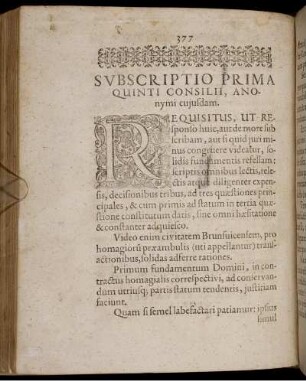 377
SVBSCRIPTIO PRIMA
QUINTI CONSILII, ANO-
nymi cujusdam.
REQUISITUS, UT RE-
sponso huic, aut de more sub
scribam, aut si quid juri mi
nus congruere videatur, so-
lidis fundamentis refellam;
scriptis omnibus lectis, rele-
ctis atque diligenter expen-
sis, decisionibus tribus, ad tres quæstiones prin
cipales, & cum primis ad statum in tertia quæ-
stione constitutum datis, sine omni hæsitatione
& constanter adquiesco.
Video enim civitatem Brunsuicensem, pro
homagiorũ peræambulis (uti appellantur) trans
actionibus, solidas adferre rationes.
Primum fundamentum Domini, in con-
tractus homagialis correspectivi, ad conservan-
dum utriusq; partis statum tendentis, justitiam
faciunt.
Quam si semel labefactari patiamur: ipsius
simul